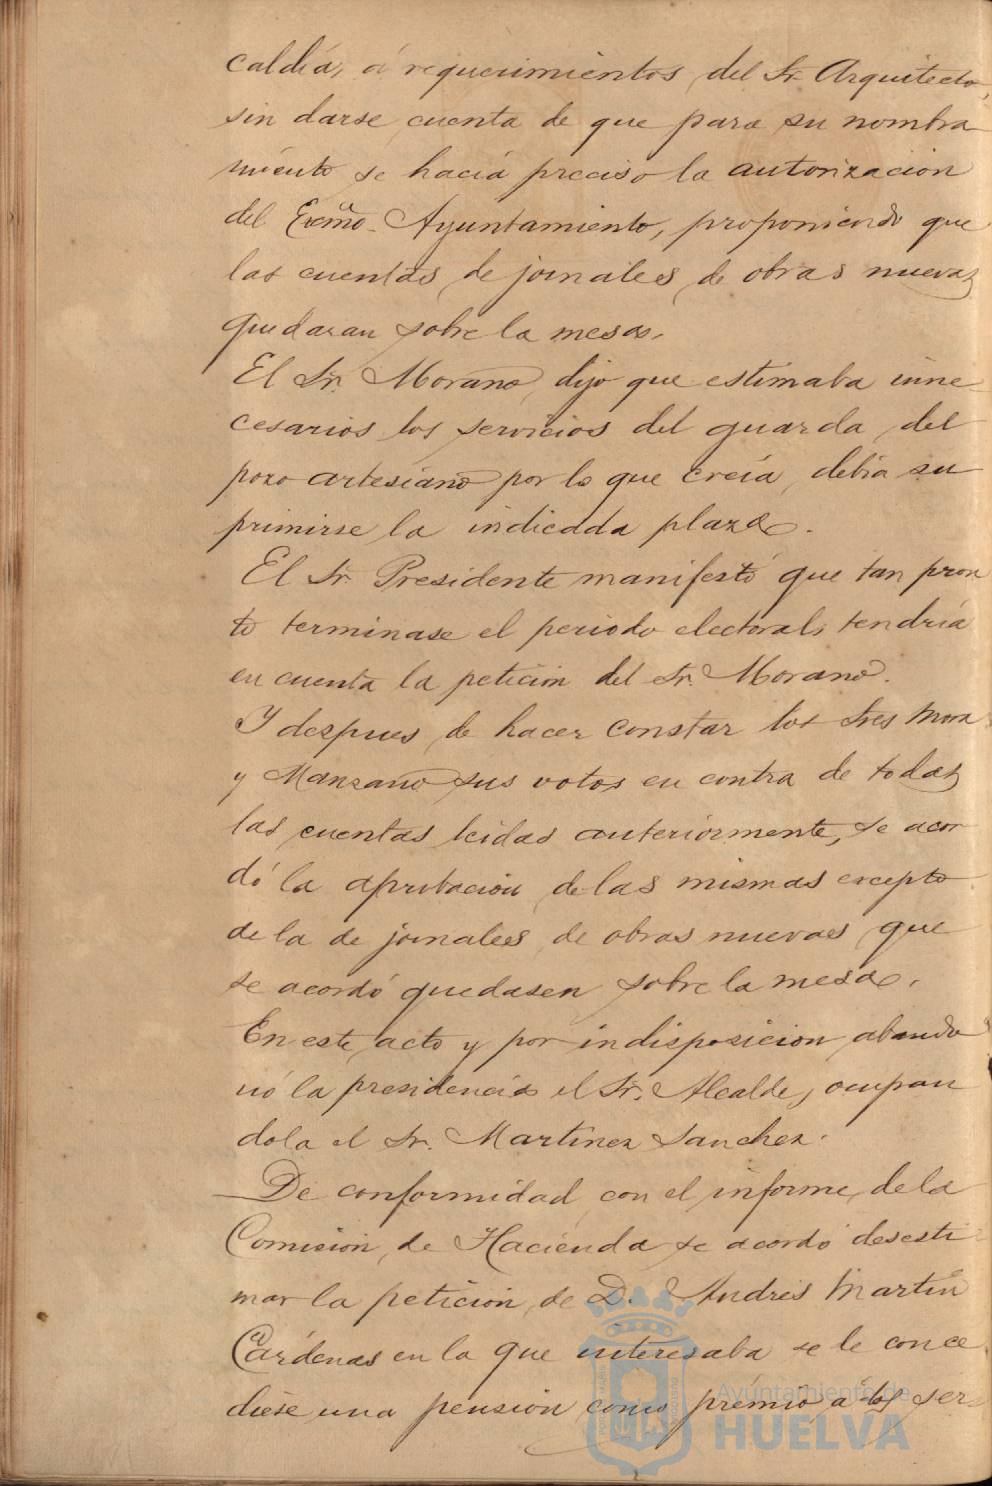 caldía, á requerimientos del Sr. Arquitecto,
sin darse cuenta de que para su nombra
miento se hacía preciso la autorizacion
del Excmo. Ayuntamiento, proponiendo que
las cuentas de jornales de obras nuevas
quedaran sobre la mesa.
El Sr. Morano, dijo que estimaba inne
cesarios los servicios del guarda del
pozo artesiano por lo que creía debia su
primirse la indicada plaza.
El Sr. Presidente manifestó que tan pron
to terminase el periodo electoral, tendría
en cuenta la peticion del Sr. Morano.
Y despues de hacer constar los Sres Mora
y Manzano sus votos en contra de todas
las cuentas leidas anteriormente, se acor
dó la aprobacion de las mismas excepto
de la de jornales de obras nuevas que
se acordó quedasen sobre la mesa.
En este acto y por indisposicion abando
nó la presidencia el Sr. Alcalde, ocupan
dola el Sr. Martinez Sanchez.
De conformidad con el informe de la
Comision de Hacienda se acordó desesti
mar la peticion de D. Andrés Martin
Cárdenas en la que interesaba se le conce
diese una pension como premio a los ser
Ayuntamiento de
HUELVA